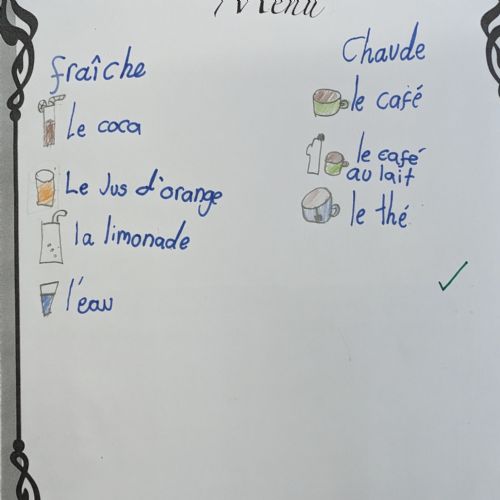 Menu
fraîche
Le coca
Le Jus d'orange
la limonade
l'eau
Chaude
le café
le café
au lait
le thé